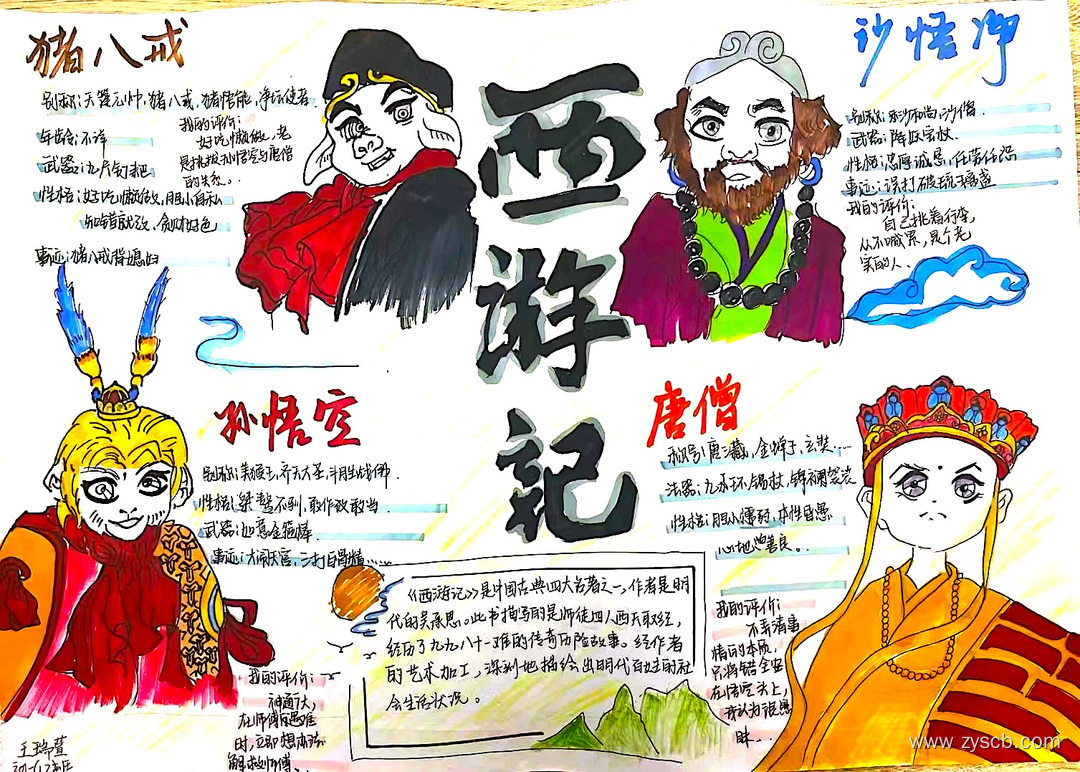 猪八戒
别称：天篷元帅，猪八戒，猪悟能，净坛使者
年龄：不详
武器：九齿钉耙
性格：好吃懒做，胆小自私
知错就改，贪财好色
事迹：猪八戒背媳妇
我的评价：
好吃懒做，老
是挑拨孙悟空与唐僧
的关系。
西游记
沙悟净
别称：沙和尚，沙僧
武器：降妖宝杖
性格：忠厚诚恳，任劳任怨
事迹：误打破琉璃盏
我的评价：
自己挑着行李，
从不喊累，是个老
实的人。
孙悟空
别称：美猴王，齐天大圣，斗战胜佛
性格：桀骜不驯，敢作敢当
武器：如意金箍棒
事迹：大闹天宫，三打白骨精……
我的评价：
神通广大，
在师傅遇难
时，立即想办法
解救师傅。
唐僧
称号：唐三藏，金蝉子，玄奘……
法器：九水环锡杖，锦襕袈裟
性格：胆小懦弱，本性自愚
心地善良。
我的评价：
不弄清事
情的本质，
只将错全安
在悟空头上，
我认为很愚
昧…
《西游记》是中国古典四大名著之一，作者是明
代的吴承恩。此书描写的是师徒四人西天取经，
经历了九九八十一难的传奇历险故事。经作者
的艺术加工，深刻地描绘出明代百姓的社
会生活状况。
www.zyscb.com